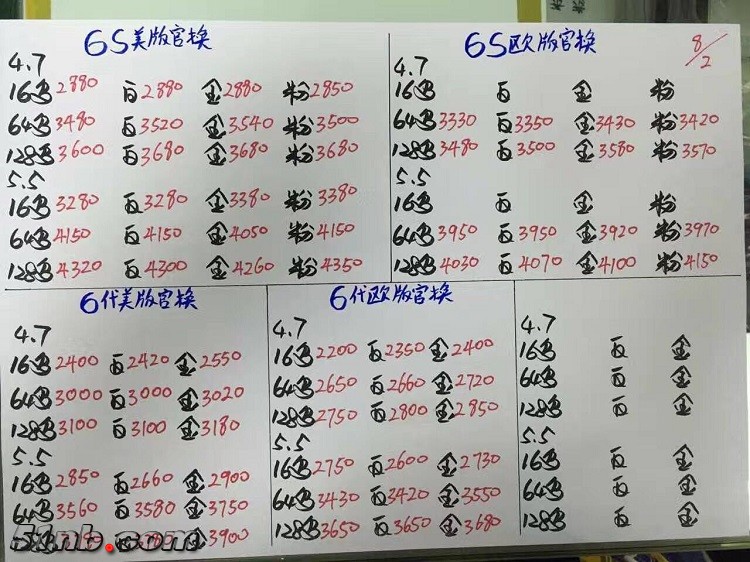 6S美版官换
4.7
16黑2880 白2880 金2880 粉2850
64黑3480 白3520 金3540 粉3500
128黑3600 白3680 金3680 粉3680
5.5
16黑3280 白3280 金3380 粉3380
64黑4150 白4150 金4050 粉4150
128黑4320 白4300 金4260 粉4350
6S欧版官换
8/2
4.7
16黑 白 金 粉
64黑3330 白3350 金3430 粉3420
128黑3480 白3500 金3580 粉3570
5.5
16黑 白 金 粉
64黑3950 白3950 金3920 粉3970
128黑4030 白4070 金4100 粉4150
6代美版官换
4.7
16黑2400 白2420 金2550
64黑3000 白3000 金3020
128黑3100 白3100 金3180
5.5
16黑2850 白2660 金2900
64黑3560 白3580 金3750
金3900
6代欧版官换
4.7
16黑2200 白2350 金2400
64黑2650 白2660 金2720
128黑2750 白2800 金2850
5.5
16黑2750 白2600 金2730
64黑3430 白3420 金3550
128黑3650 白3650 金3680
4.7
16黑 白 金
64黑 白 金
128黑 白 金
5.5
16黑 白 金
64黑 白 金
128黑 白 金
51nb.com